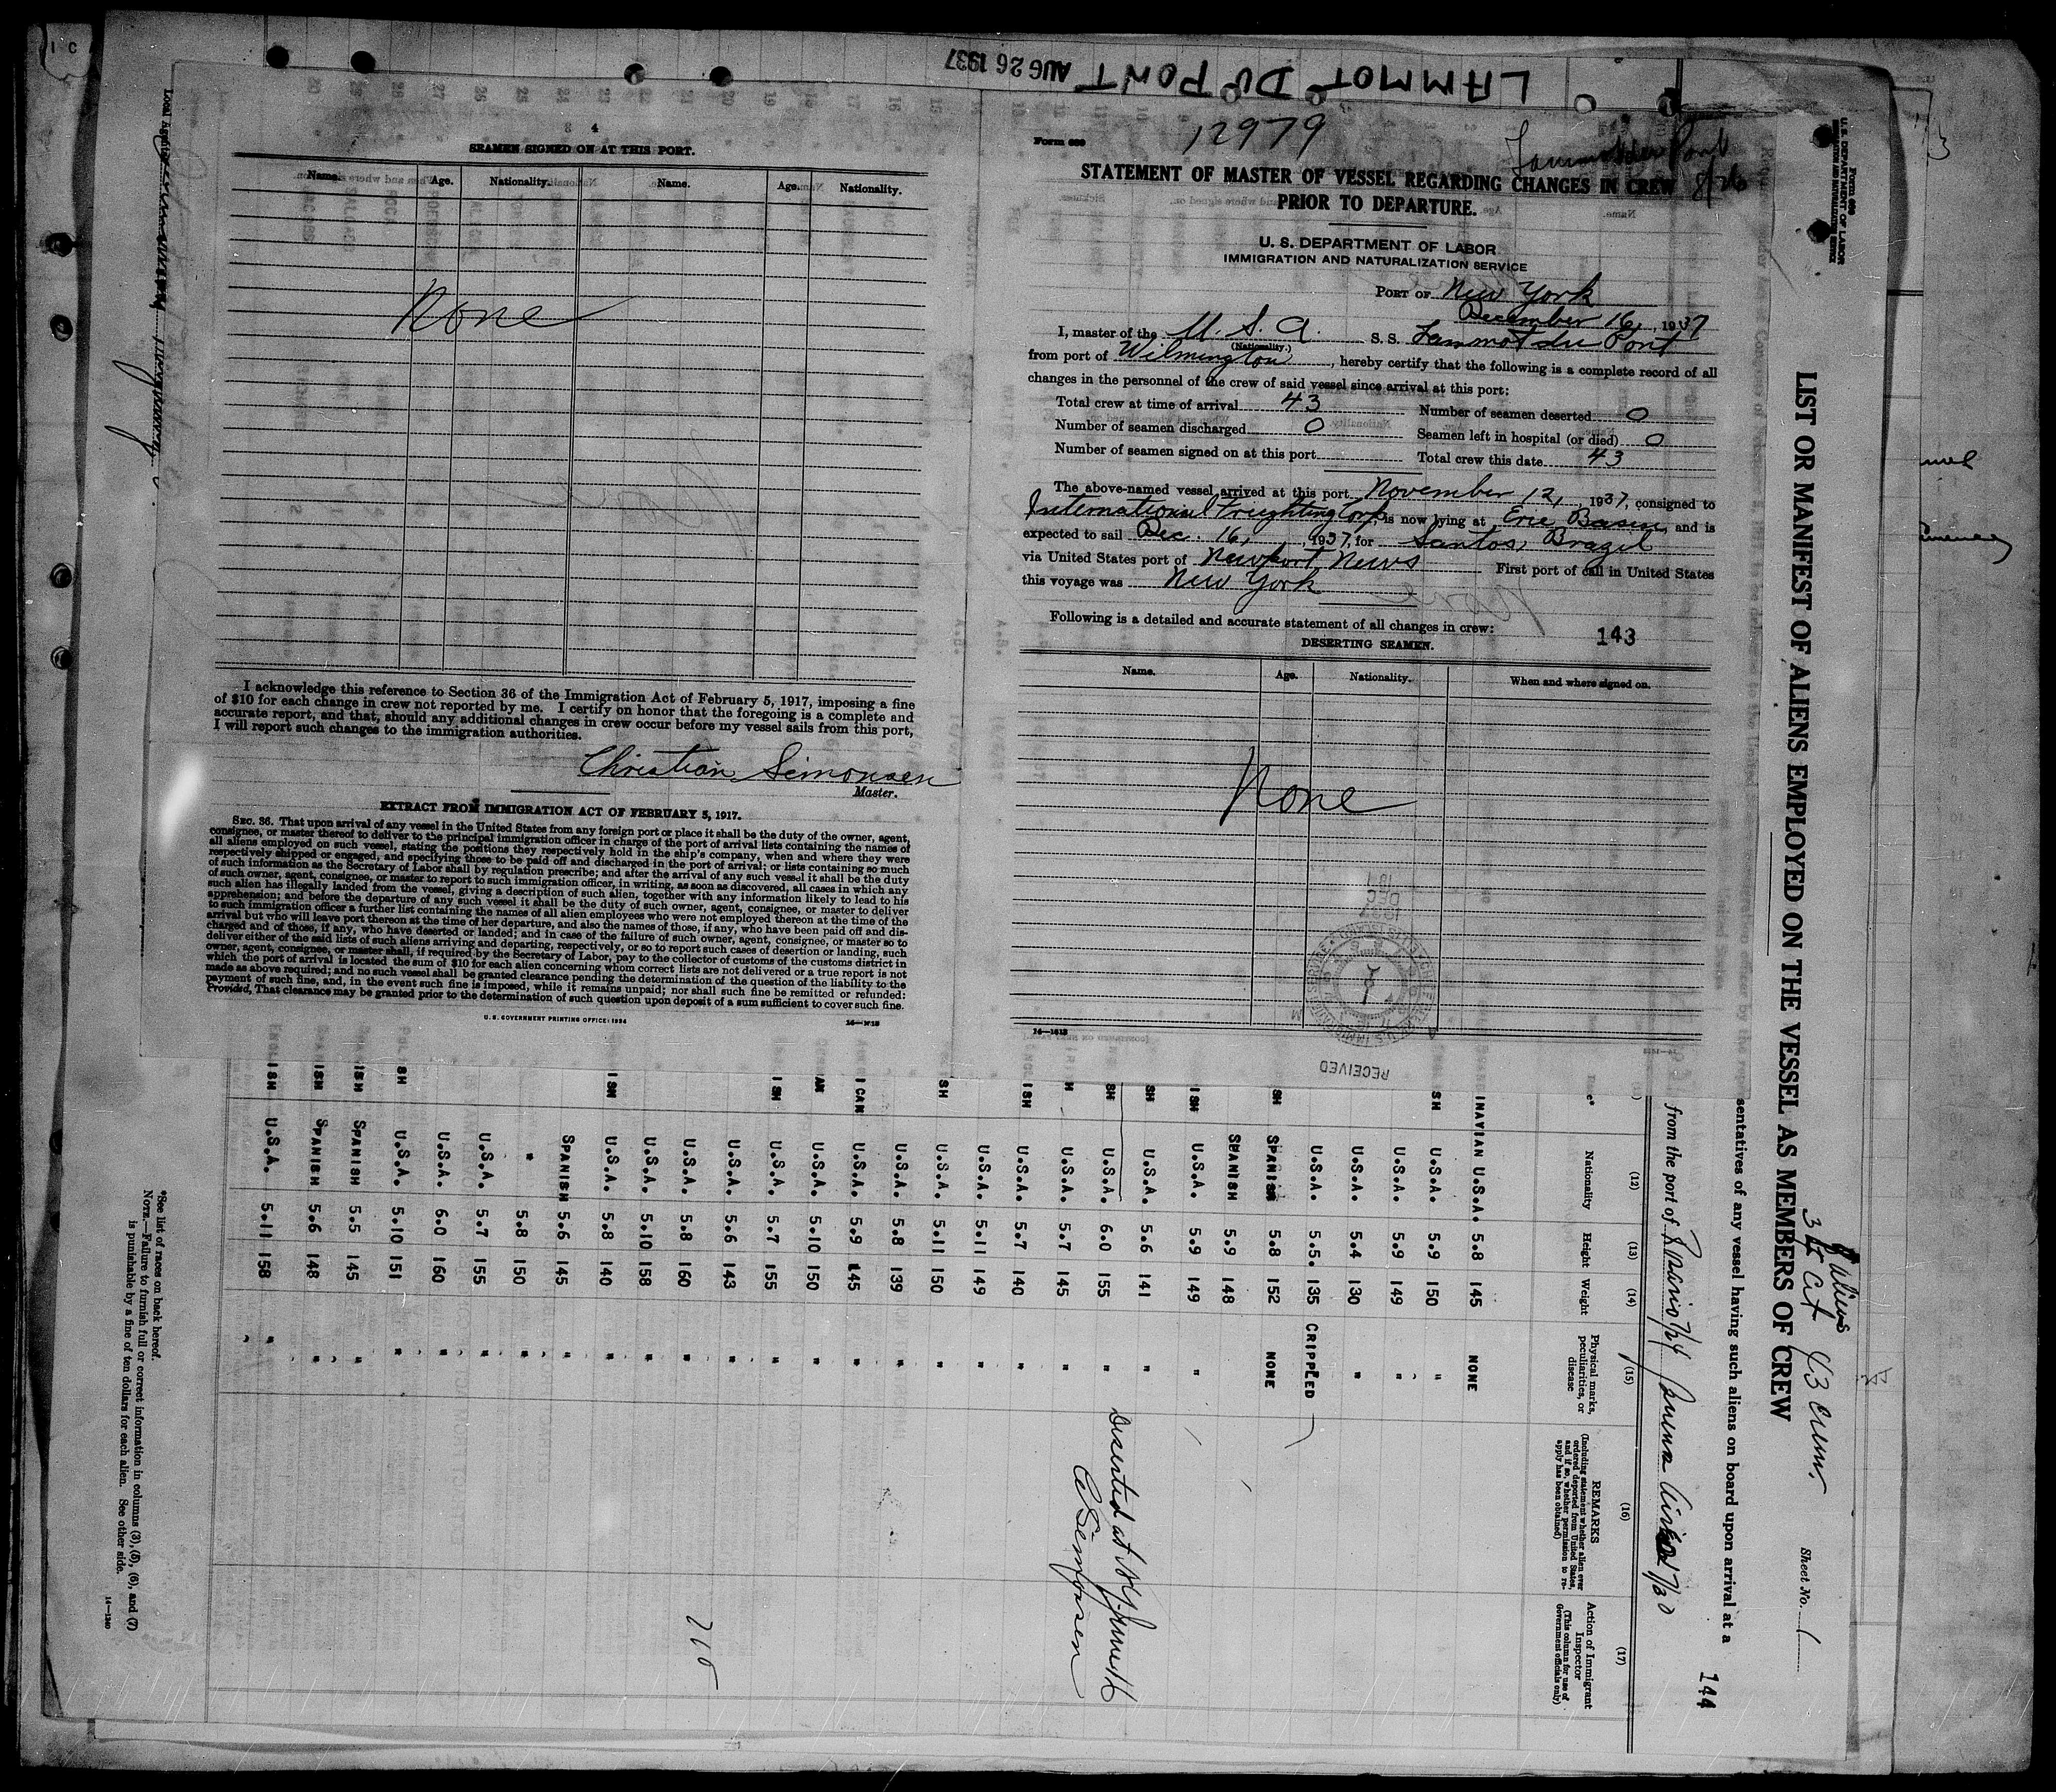 LAMMOT DU PONT AUG 26 1937
4
SEAMEN SIGNED ON AT THIS PORT.
Name. Age. Nationality. Name. Age. Nationality.
None
I acknowledge this reference to Section 36 of the Immigration Act of February 5, 1917, imposing a fine
of $10 for each change in crew not reported by me. I certify on honor that the foregoing is a complete and
accurate report, and that, should any additional changes in crew occur before my vessel sails from this port,
I will report such changes to the immigration authorities.
Christian Simonsen
Master.
EXTRACT FROM IMMIGRATION ACT OF FEBRUARY 5, 1917.
SEC. 36. That upon arrival of any vessel in the United States from any foreign port or place it shall be the duty of the owner, agent,
consignee, or master thereof to deliver to the principal immigration officer in charge of the port of arrival lists containing the names of
all aliens employed on such vessel, stating the positions they respectively hold in the ship's company, when and where they were
respectively shipped or engaged, and specifying those to be paid off and discharged in the port of arrival; or lists containing so much
of such information as the Secretary of Labor shall by regulation prescribe; and after the arrival of any such vessel it shall be the duty
of such owner, agent, consignee, or master to report to such immigration officer, in writing, as soon as discovered, all cases in which any
such alien has illegally landed from the vessel, giving a description of such alien, together with any information likely to lead to his
apprehension; and before the departure of any such vessel it shall be the duty of such owner, agent, consignee, or master to deliver
to such immigration officer a further list containing the names of all alien employees who were not employed thereon at the time of the
arrival but who will leave port thereon at the time of her departure, and also the names of those, if any, who have been paid off and dis-
charged and of those, if any, who have deserted or landed; and in case of the failure of such owner, agent, consignee, or master so to
deliver either of the said lists of such aliens arriving and departing, respectively, or so to report such cases of desertion or landing, such
owner, agent, consignee, or master shall, if required by the Secretary of Labor, pay to the collector of customs of the customs district in
which the port of arrival is located the sum of $10 for each alien concerning whom correct lists are not delivered or a true report is not
made as above required; and no such vessel shall be granted clearance pending the determination of the question of the liability to the
payment of such fine, and, in the event such fine is imposed, while it remains unpaid; nor shall such fine be remitted or refunded:
Provided, That clearance may be granted prior to the determination of such question upon deposit of a sum sufficient to cover such fine.
U. S. GOVERNMENT PRINTING OFFICE: 1934
Form 689
12979
Lammot du Pont
8/26
STATEMENT OF MASTER OF VESSEL REGARDING CHANGES IN CREW
PRIOR TO DEPARTURE.
U. S. DEPARTMENT OF LABOR
IMMIGRATION AND NATURALIZATION SERVICE
PORT OF New York
December 16, 1937
I, master of the U. S. A. S. S. Lammot du Pont
(Nationality.)
from port of Wilmington, hereby certify that the following is a complete record of all
changes in the personnel of the crew of said vessel since arrival at this port:
Total crew at time of arrival 43 Number of seamen deserted 0
Number of seamen discharged 0 Seamen left in hospital (or died) 0
Number of seamen signed on at this port Total crew this date 43
The above-named vessel arrived at this port November 12, 1937, consigned to
International Freighting Corp is now lying at Erie Basin, and is
expected to sail Dec. 16, 1937, for Santos Brazil
via United States port of Newport News First port of call in United States
this voyage was New York
Following is a detailed and accurate statement of all changes in crew:
143
DESERTING SEAMEN.
Name. Age. Nationality. When and where signed on.
None
RECEIVED
U. S. DEPARTMENT OF LABOR
IMMIGRATION AND NATURALIZATION SERVICE
LIST OR MANIFEST OF ALIENS EMPLOYED ON THE VESSEL AS MEMBERS OF CREW
9 aliens
43 crew
Sheet No. 1
sentatives of any vessel having such aliens on board upon arrival at a
144
from the port of
(12) (13) (14) (15) (16) (17)
Nationality Height Weight Physical marks, peculiarities, or disease REMARKS (Including statement whether alien ever ordered deported from United States, and if so, whether permission to re-apply has been obtained) Action of Immigrant Inspector (This column for use of Government officials only)
INAVIAN U.S.A. 5.8 145 NONE
SH U.S.A. 5.9 150 "
U.S.A. 5.9 149 "
U.S.A. 5.4 130 "
U.S.A. 5.5. 135 CRIPPLED
SH SPANISH 5.8 152 NONE
SPANISH 5.9 148
ISH U.S.A. 5.9 149 "
SH U.S.A. 5.6 141 "
SH U.S.A. 6.0 155 " Deserted at N.Y.
H U.S.A. 5.7 145 " C Simonsen
ISH U.S.A. 5.7 140 "
U.S.A. 5.11 149 "
SH U.S.A. 5.11 150 "
U.S.A. 5.8 139 "
ICAN U.S.A. 5.9 145 "
AN U.S.A. 5.10 150 "
ISH U.S.A. 5.7 155 "
U.S.A. 5.6 143 "
U.S.A. 5.8 160 "
U.S.A. 5.10 158 "
ISH U.S.A. 5.8 140 "
SPANISH 5.6 145 "
" 5.8 150 "
U.S.A. 5.7 155 "
U.S.A. 6.0 160 "
SH U.S.A. 5.10 151 "
ISH SPANISH 5.5 145 "
ISH SPANISH 5.6 148 "
ISH U.S.A. 5.11 158 "
*See list of races on back hereof.
NOTE.—Failure to furnish full or correct information in columns (3), (5), (6), and (7)
is punishable by a fine of ten dollars for each alien. See other side.